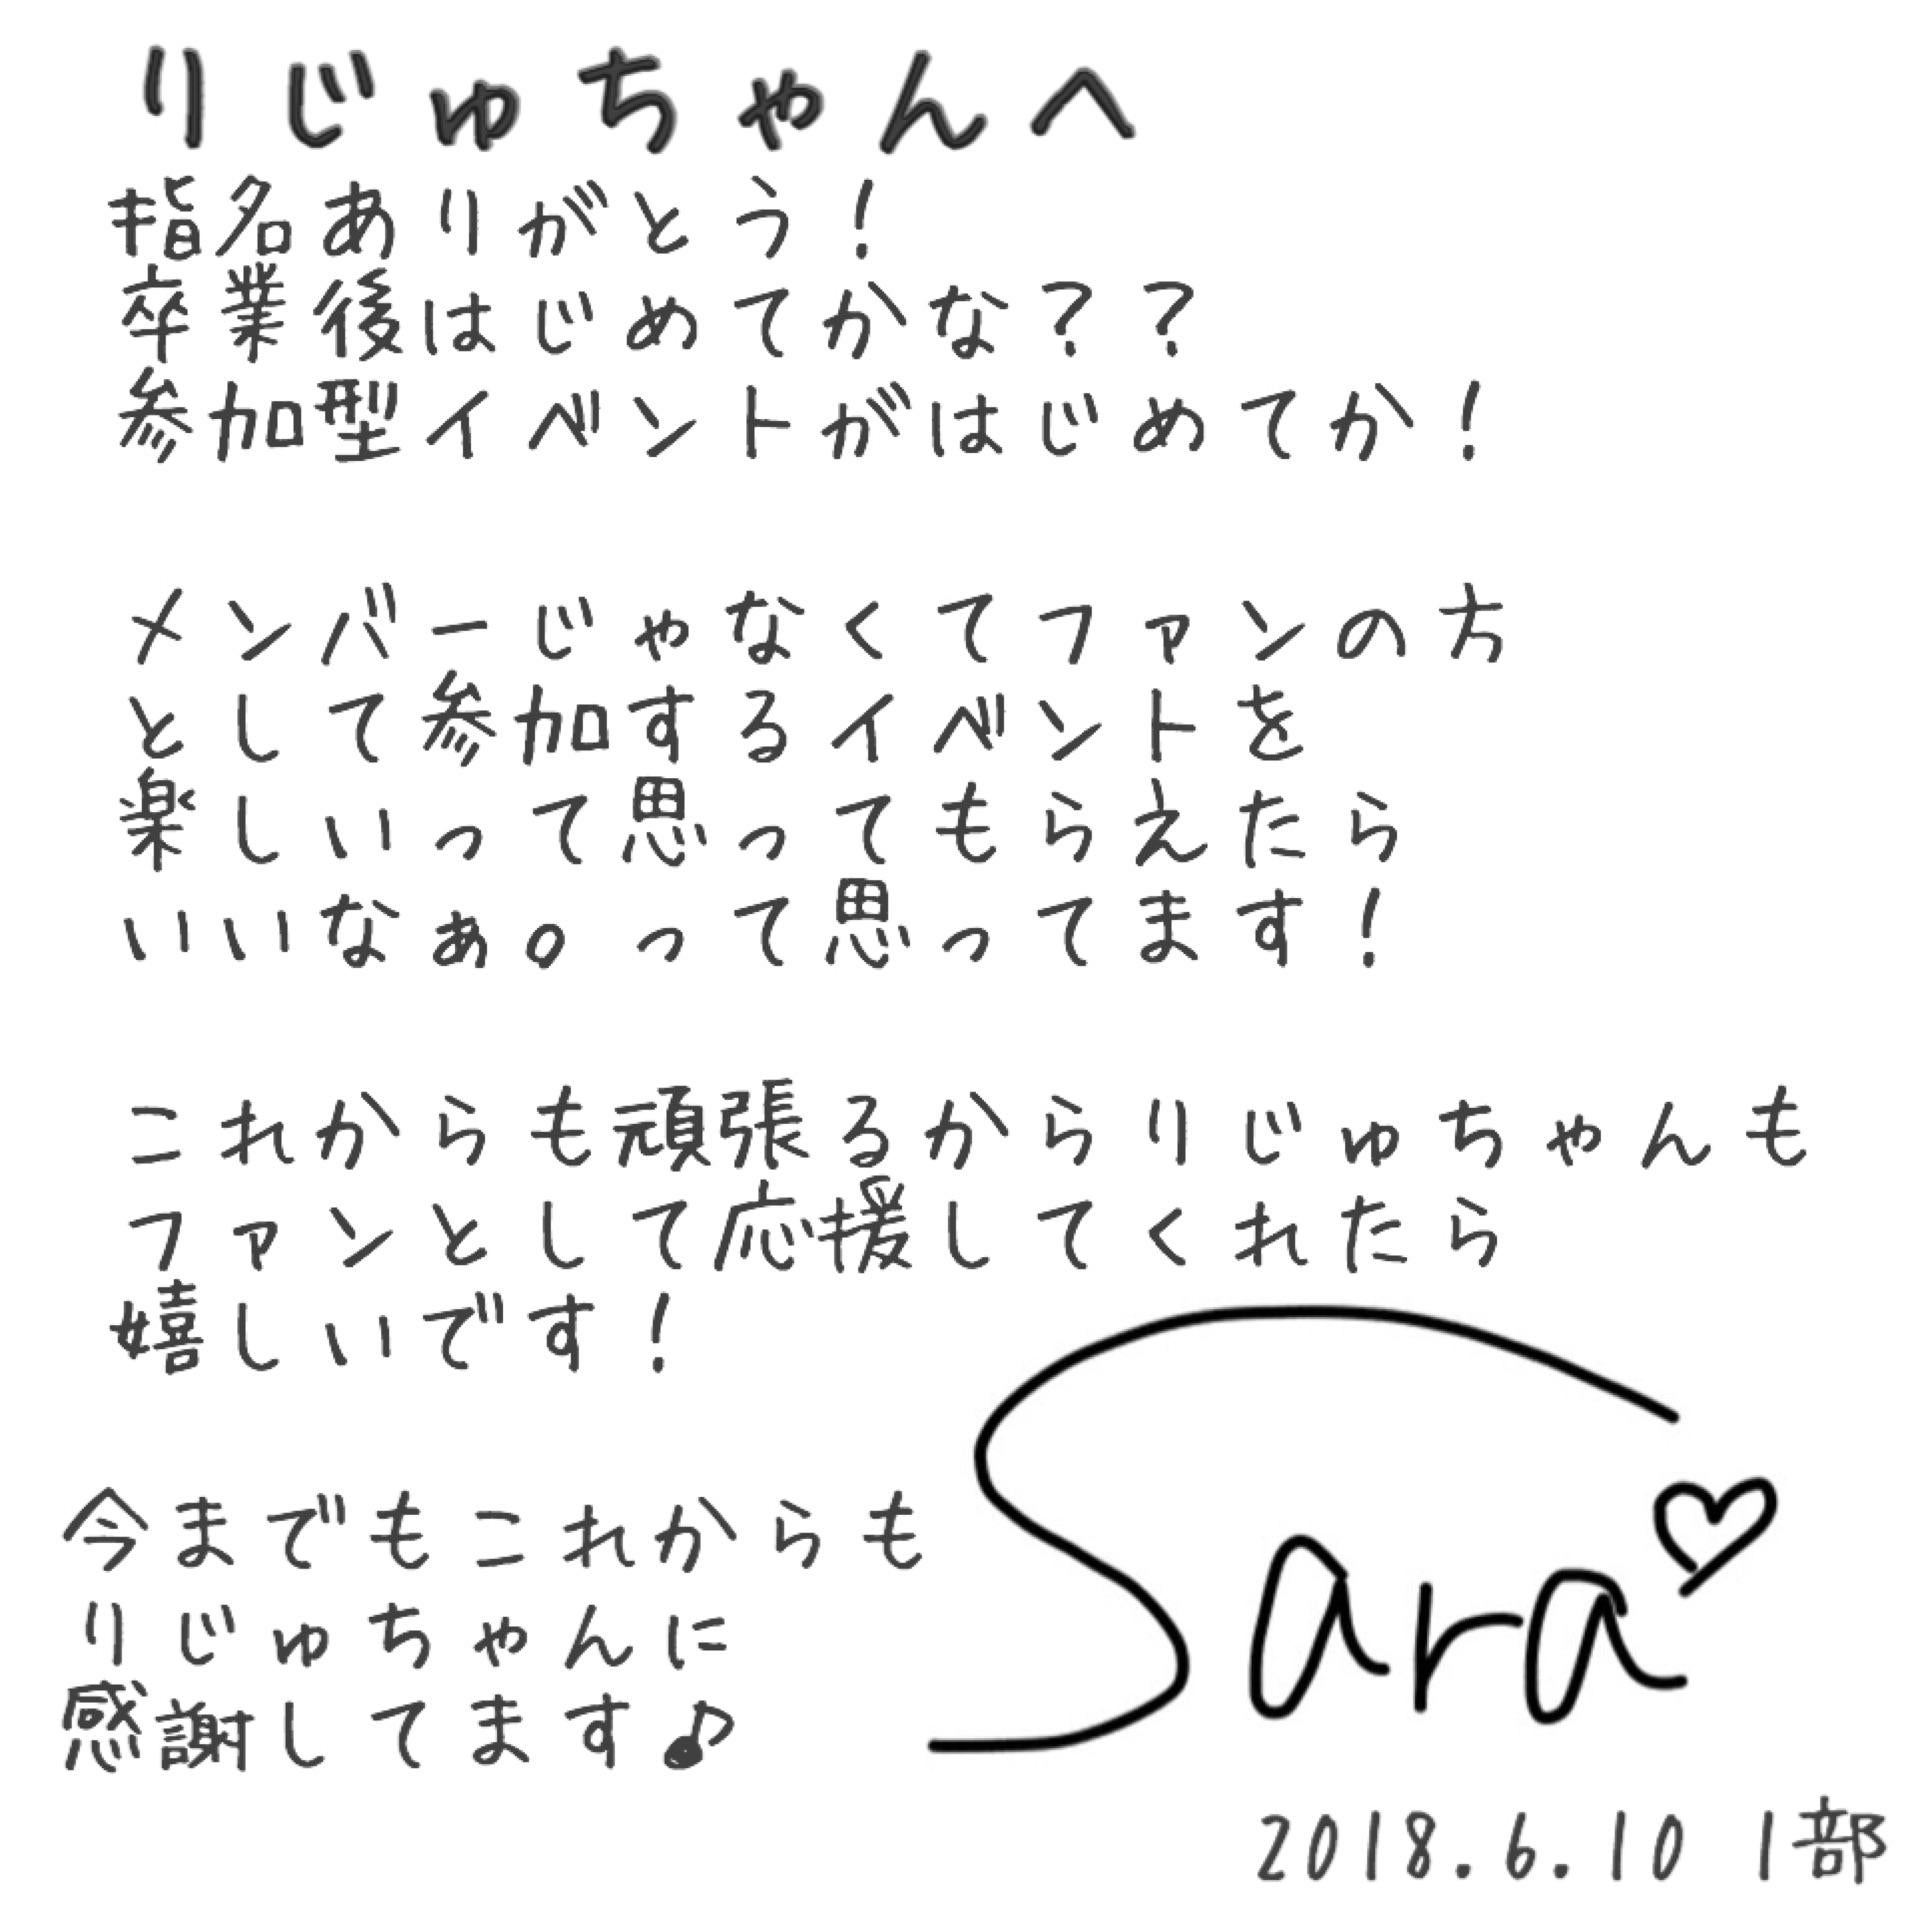 りじゅちゃんへ
指名ありがとう!
卒業後はじめてかな??
参加型イベントがはじめてか!
メンバーじゃなくてファンの方
として参加するイベントを
楽しいって思ってもらえたら
いいなぁ。って思ってます!
これからも頑張るからりじゅちゃんも
ファンとして応援してくれたら
嬉しいです!
今までもこれからも
りじゅちゃんに
感謝してます♪
Sara♡
2018.6.10 1部